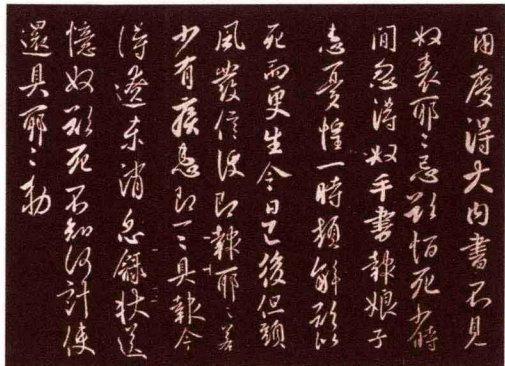 兩度得大內書不見
奴表耶耶忌欲恒死少時
間忽得奴手書報娘子
患憂惶一時頓解欲似
死而更生今日已後但頭
風發信便即報耶耶若
少有疾患即一一具報今
得遼東消息錄狀送
憶奴欲死不知何計使
還具耶耶敕